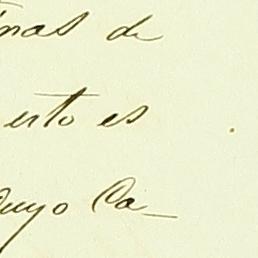 mas de
erto es
Cuyo Ca_